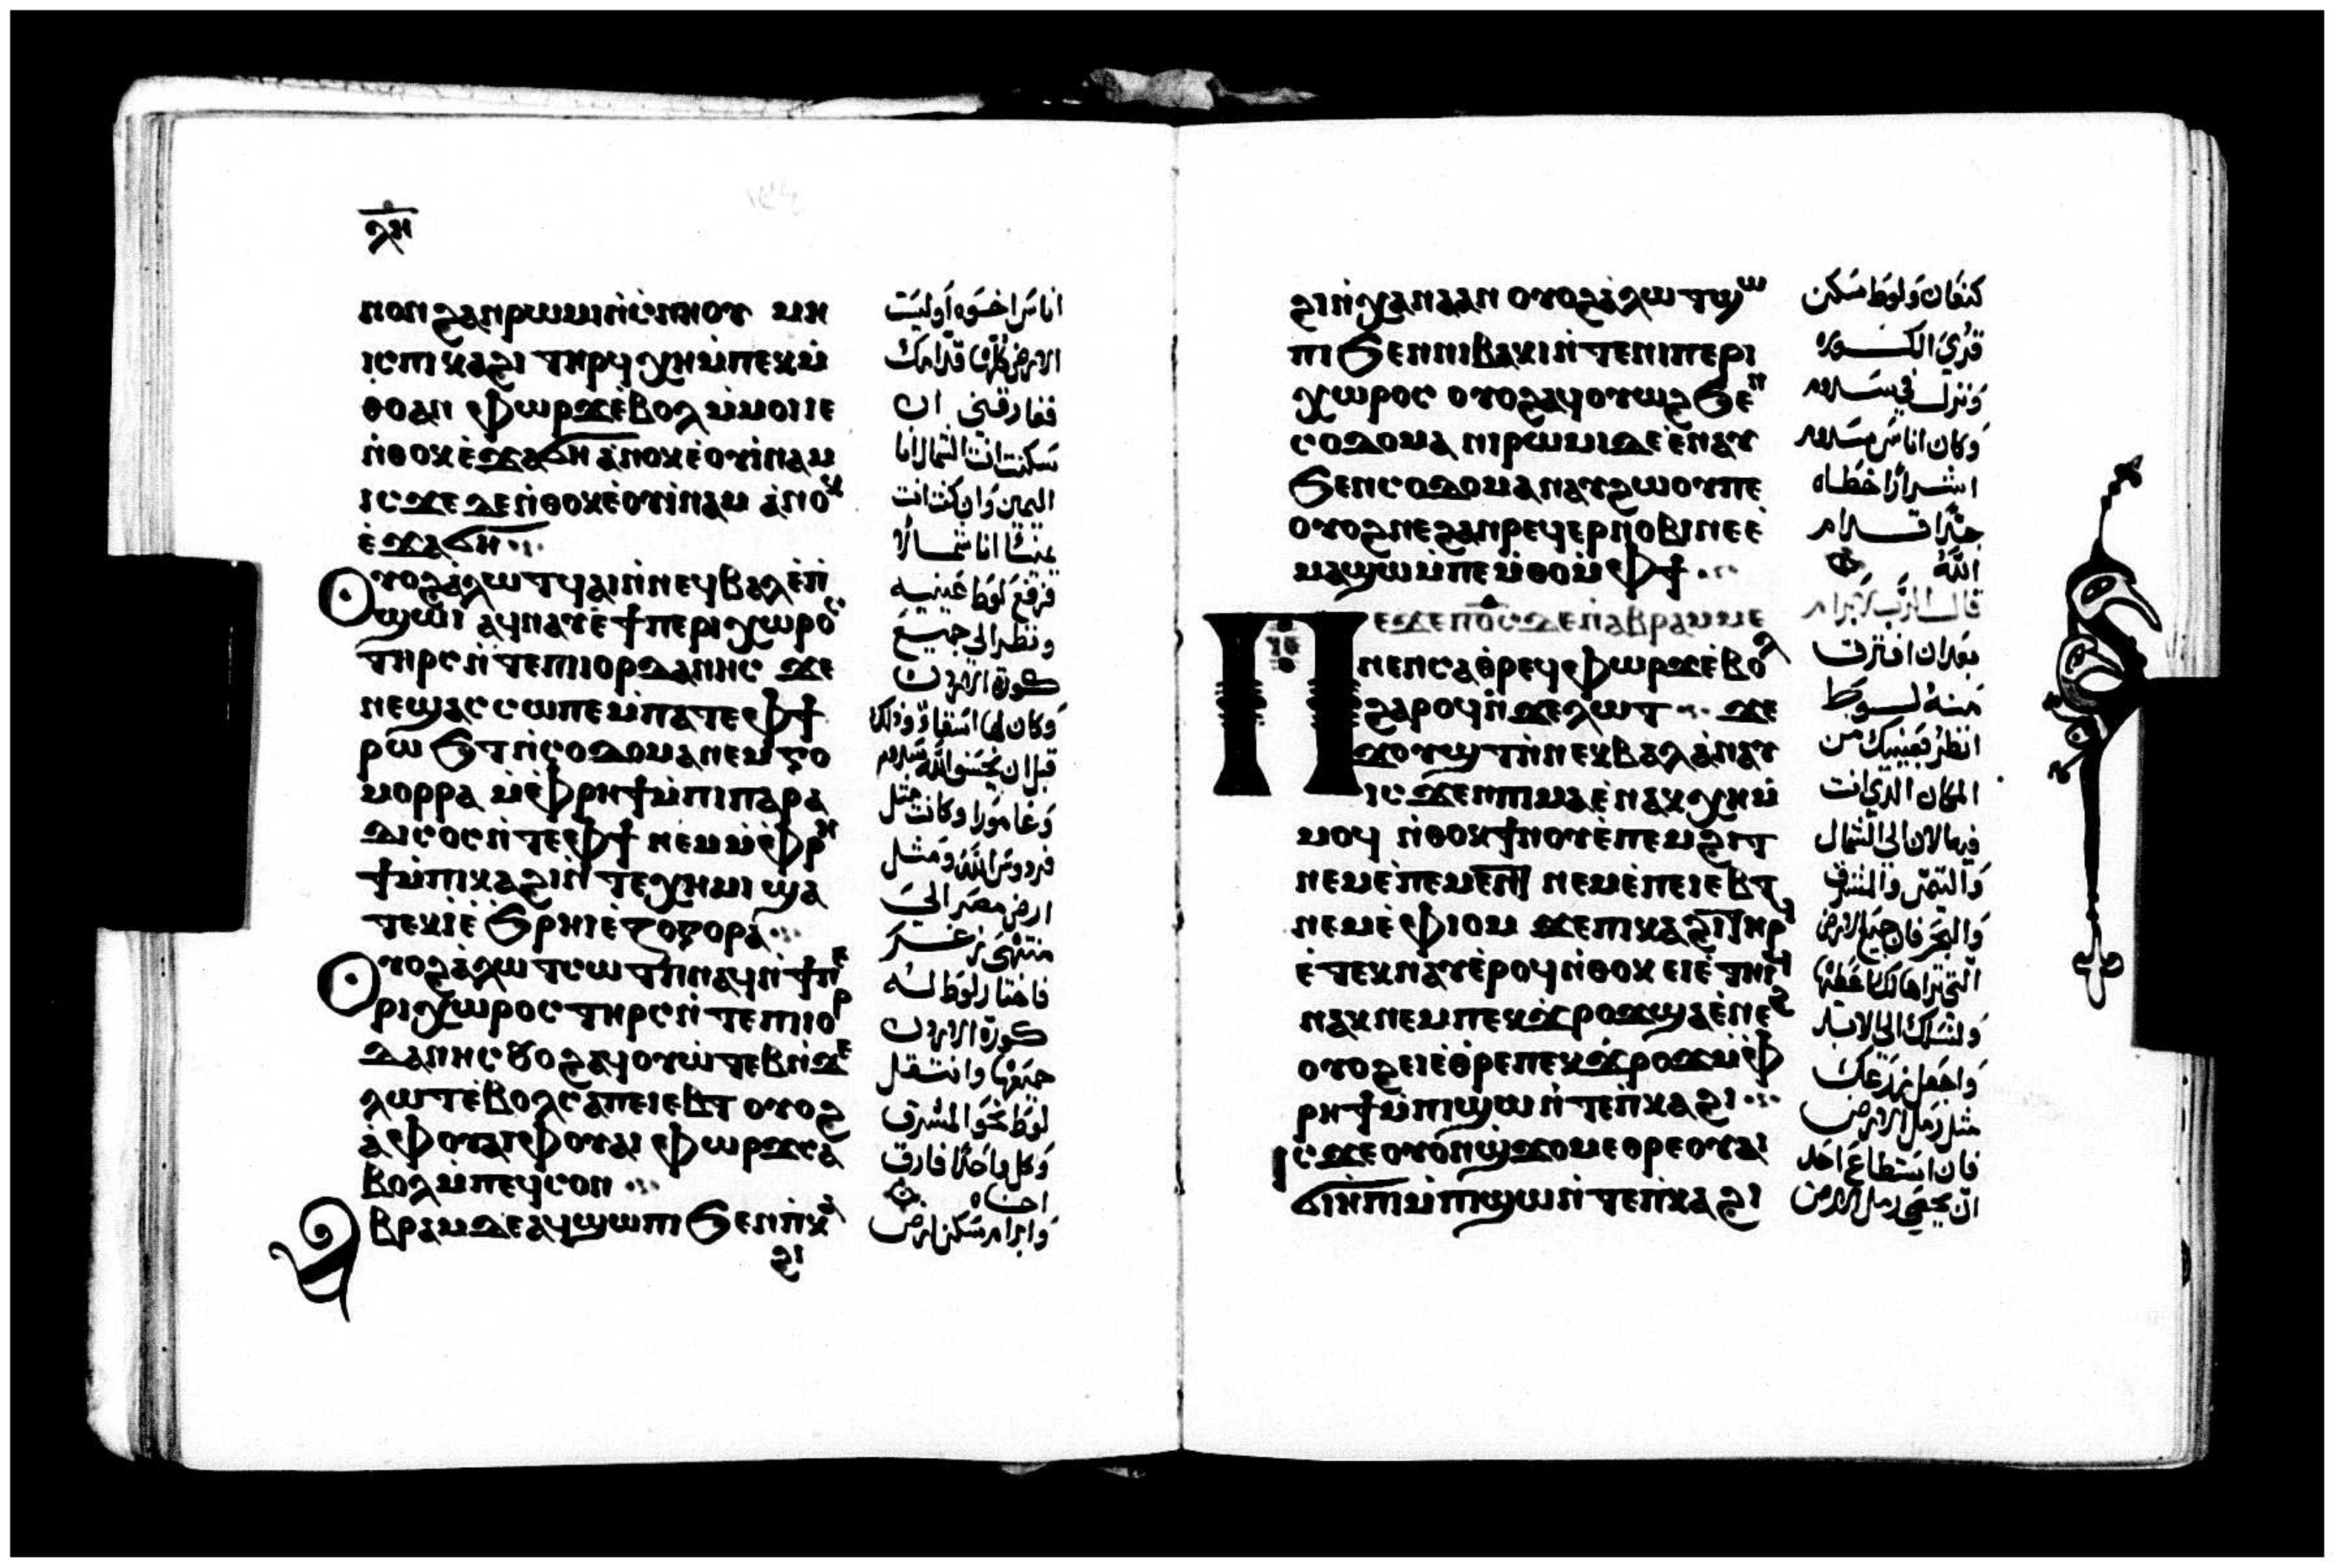 ⲗⲏ
ⲛⲟⲛ ϩⲁⲛⲣⲱⲙⲓ ⲛ̀ⲥⲛⲏⲟⲩ ⲙⲏ
ⲓⲥ ⲡⲓⲕⲁϩⲓ ⲧⲏⲣϥ ⲭⲏ ⲙ̀ⲡⲉⲕⲙ̀
ⲑⲟ ⲁⲛ ⲫⲱⲣϫ ⲉ̀ⲃⲟⲗ ⲙ̀ⲙⲟⲓ ⲓⲉ
ⲛ̀ⲑⲟⲕ ⲉ̀ϫⲁϭⲏ ⲁ̀ⲛⲟⲕ ⲉ̀ⲟⲩⲓ̀ⲛⲁⲙ
ⲓⲥϫⲉ ⲇⲉ ⲛ̀ⲑⲟⲕ ⲉ̀ⲟⲩⲓ̀ⲛⲁⲙ ⲁ̀ⲛⲟⲕ
ⲉ̀ϫⲁϭⲏ
ⲟⲩⲟϩ ⲁ̀ⲗⲱⲧ ϥⲁⲓ ⲛ̀ⲛⲉϥⲃⲁⲗ ⲉ̀ⲡ̀
ϣⲱⲓ ⲁϥⲛⲁⲩ ⲉ̀ϯⲡⲉⲣⲓⲭⲱⲣⲟⲥ
ⲧⲏⲣⲥ ⲛ̀ⲧⲉ ⲡⲓⲓⲟⲣⲇⲁⲛⲏⲥ ϫⲉ
ⲛⲉϣⲁⲥⲥⲱ ⲡⲉ ⲙ̀ⲡⲁⲧⲉ ⲫϯ
ⲣⲱϧⲧ ⲛ̀ⲥⲟⲇⲟⲙⲁ ⲛⲉⲙ ⲅⲟ
ⲙⲟⲣⲣⲁ ⲙ̀ⲫⲣⲏϯ ⲙ̀ⲡⲓⲡⲁⲣⲁ
ⲇⲓⲥⲟⲥ ⲛ̀ⲧⲉ ⲫϯ ⲛⲉⲙ ⲙ̀ⲫⲣⲏ
ϯ ⲙ̀ⲡⲕⲁϩⲓ ⲛ̀ⲧⲉ ⲭⲏⲙⲓ ϣⲁ
ⲧⲉⲕⲓ̀ ⲉ̀ϧⲣⲏⲓ ⲉ̀ⲍⲟⲅⲟⲣⲁ
ⲟⲩⲟϩ ⲁ̀ⲗⲱⲧ ⲥⲱⲧⲡ ⲛⲁϥ ⲛ̀ϯⲡⲉ
ⲣⲓⲭⲱⲣⲟⲥ ⲧⲏⲣⲥ ⲛ̀ⲧⲉ ⲡⲓⲓⲟⲣ
ⲇⲁⲛⲏⲥ ⲟⲩⲟϩ ⲁϥⲟⲩⲱ̀ⲧⲉⲃ ⲛ̀ϫⲉ
ⲗⲱⲧ ⲉ̀ⲃⲟⲗ ⲥⲁⲡⲉⲓⲉⲃⲧ ⲟⲩⲟϩ
ⲁ̀ ⲫⲟⲩⲁⲓ ⲫⲟⲩⲁⲓ ⲫⲱⲣϫ ⲥⲁ
ⲃⲟⲗ ⲙ̀ⲡⲉϥⲥⲟⲛ
ⲁⲃⲣⲁⲙ ⲇⲉ ⲁϥϣⲱⲡⲓ ϧⲉⲛ ⲡ̀ⲕⲁ
ϩⲓ
اناس اخوه اوليست
الارض كلها قدامك
ففارقني ان
سكنت انت الشمال انا
اليمين وان كنت انت
يمنة انا شمالا
فرفع لوط عينيه
ونظر الي جميع
كورة الاردن
وكان لها اسقاة وذلك
قبل ان يخسف الله سدوم
وغامورا وكانت مثل
فردوس الله ومثل
ارض مصر الي
منتهي زغر
فاختار لوط له
كورة الاردن
جميعها وانتقل
لوط نحو المشرق
وكل واحد فارق
اخاه
وابرام سكن ارض
ϩⲓ ⲛ̀ⲭⲁⲛⲁⲁⲛ ⲟⲩⲟϩ ⲁ̀ⲗⲱⲧ ϣⲱ
ⲡⲓ ϧⲉⲛ ⲛⲓⲃⲁⲕⲓ ⲛ̀ⲧⲉ ⲛⲓⲡⲉⲣⲓ
ⲭⲱⲣⲟⲥ ⲟⲩⲟϩ ⲁϥⲟⲩⲱϩ ϧⲉⲛ
ⲥⲟⲇⲟⲙⲁ ⲛⲓⲣⲱⲙⲓ ⲇⲉ ⲉ̀ⲛⲁⲩ
ϧⲉⲛ ⲥⲟⲇⲟⲙⲁ ⲛⲁⲩϩⲱⲟⲩ ⲡⲉ
ⲟⲩⲟϩ ⲛⲉ ϩⲁⲛⲣⲉϥⲉⲣⲛⲟⲃⲓ ⲛⲉ ⲉ̀
ⲙⲁϣⲱ ⲙ̀ⲡⲉⲙ̀ⲑⲟ ⲙ̀ⲫϯ
ⲡⲉϫⲉ ⲡⲟ̅ⲥ̅ ⲇⲉ ⲛ̀ⲁⲃⲣⲁⲙ ⲙⲉ
ⲛⲉⲛⲥⲁ ⲑ̀ⲣⲉϥⲫⲱⲣϫ ⲉ̀ⲃⲟⲗ
ϩⲁⲣⲟϥ ⲛ̀ϫⲉ ⲗⲱⲧ ϫⲉ
ϫⲟⲩϣⲧ ⲛ̀ⲛⲉⲕⲃⲁⲗ ⲁ̀ⲛⲁⲩ
ⲓⲥϫⲉⲛ ⲡⲓⲙⲁ ⲉ̀ⲛⲁⲕⲭⲏ ⲙ̀
ⲙⲟϥ ⲛ̀ⲑⲟⲕ ϯⲛⲟⲩ ⲉ̀ⲡⲉⲙϩⲓⲧ
ⲛⲉⲙ ⲉ̀ⲡⲉⲙⲉⲛⲧ ⲛⲉⲙ ⲉ̀ⲡⲉⲓⲉⲃⲧ
ⲛⲉⲙ ⲉ̀ⲫⲓⲟⲙ ϫⲉ ⲡⲓⲕⲁϩⲓ ⲧⲏⲣϥ
ⲉ̀ⲧⲉⲕⲛⲁⲩ ⲉ̀ⲣⲟϥ ⲛ̀ⲑⲟⲕ ⲉⲓⲉ̀ⲧⲏⲓϥ
ⲛⲁⲕ ⲛⲉⲙ ⲡⲉⲕϫ̀ⲣⲟϫ ϣⲁ ⲉ̀ⲛⲉϩ
ⲟⲩⲟϩ ⲉⲓⲉ̀ⲑ̀ⲣⲉ ⲡⲉⲕϫ̀ⲣⲟϫ ⲙ̀ⲫ
ⲣⲏϯ ⲙ̀ⲡⲓϣⲱ ⲛ̀ⲧⲉ ⲡ̀ⲕⲁϩⲓ
ⲓⲥϫⲉ ⲟⲩⲟⲛ ϣ̀ϫⲟⲙ ⲉⲑⲣⲉ ⲟⲩⲁⲓ
ϭⲓⲏⲡⲓ ⲙ̀ⲡⲓϣⲱ ⲛ̀ⲧⲉ ⲡ̀ⲕⲁϩⲓ
كنعان ولوط سكن
قري الكوره
ونزل في سدوم
وكان اناس سدوم
اشرارا خطاه
جدا قدام
الله
قال الرب لابرام
بعد ان افترق
منه لوط
انظر بعينيك من
المكان الذي انت
فيه الان الي الشمال
والتيمن والمشرق
والبحر فان جميع الارض
التي تراها لك اعطها
ولنسلك الي الابد
واجعل زرعك
مثل رمل الارض
فان استطاع احد
ان يحصي رمل الارض